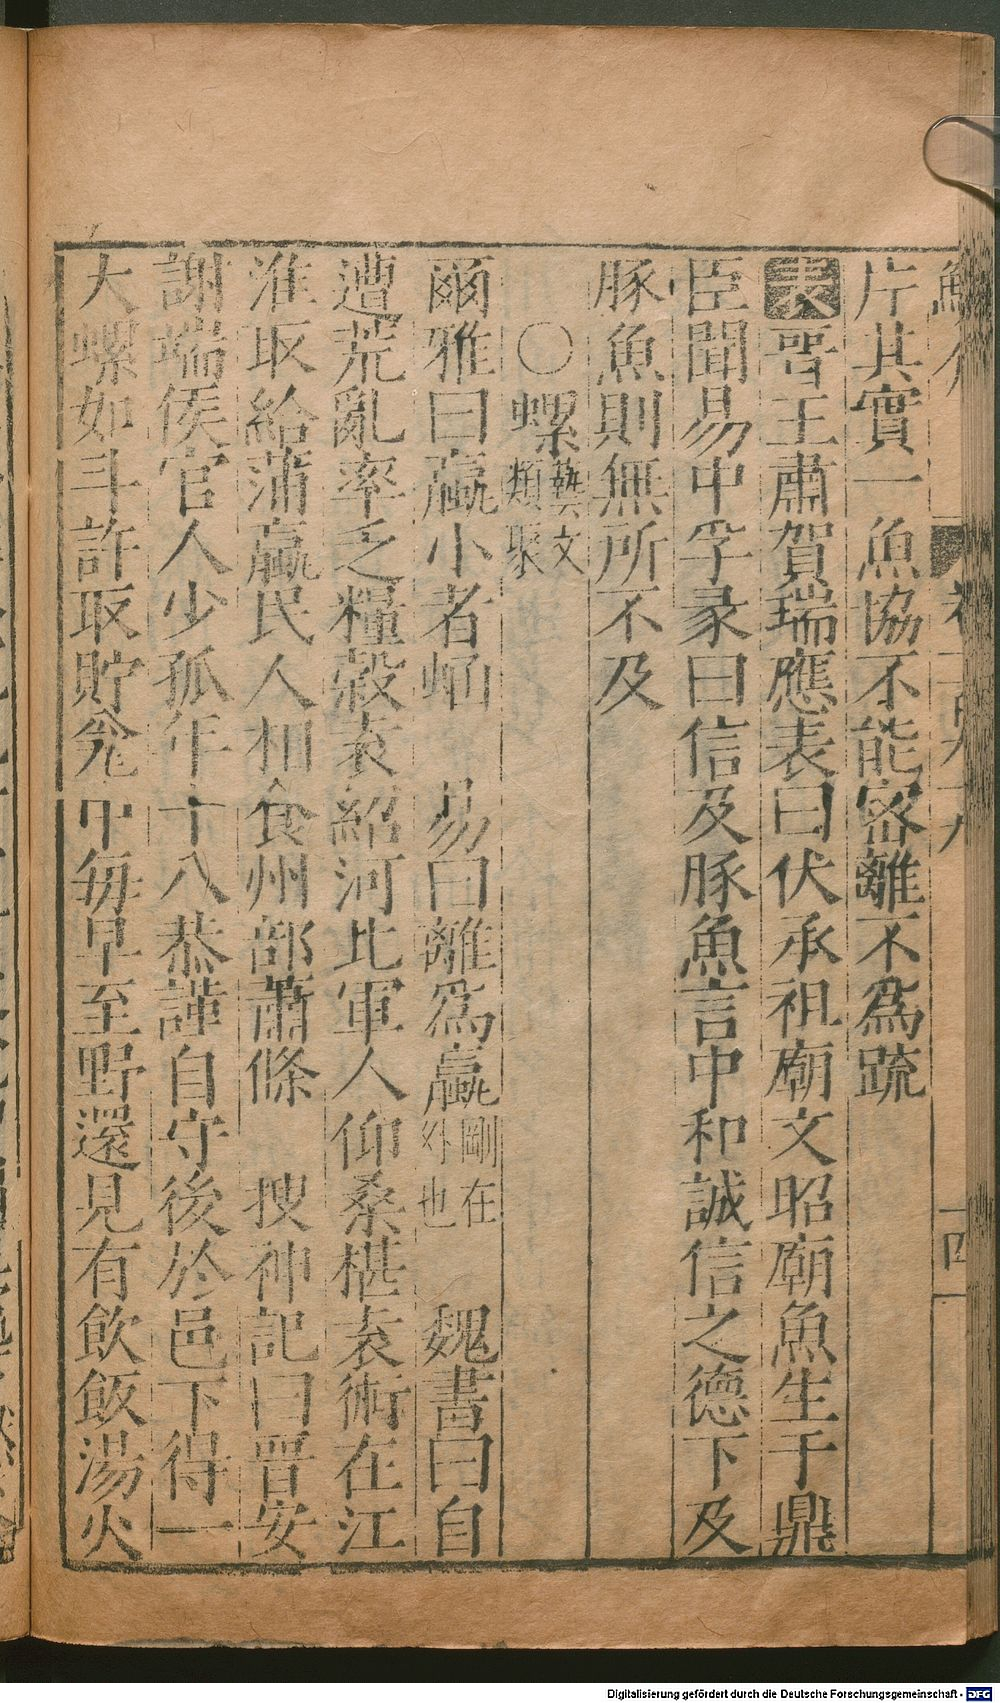 片其實一魚協不能密離不為䟽
表晉王肅賀瑞應表曰伏承祖廟文昭廟魚生于鼎
臣聞易中孚彖曰信及豚魚言中和誠信之德下及
豚魚則無所不及
〇螺藝文類聚
爾雅曰蠃小者蜬 易曰離為蠃剛在外也 魏書曰自
遭荒亂率乏糧穀袁紹河北軍人仰桑椹袁術在江
淮取給蒲蠃民人相食州部蕭條 搜神記曰晉安
謝端侯官人少孤年十八恭謹自守後於邑下得一
大螺如斗許取貯瓮中每早至野還見有飲飯湯火
Digitalisierung gefördert durch die Deutsche Forschungsgemeinschaft - DFG